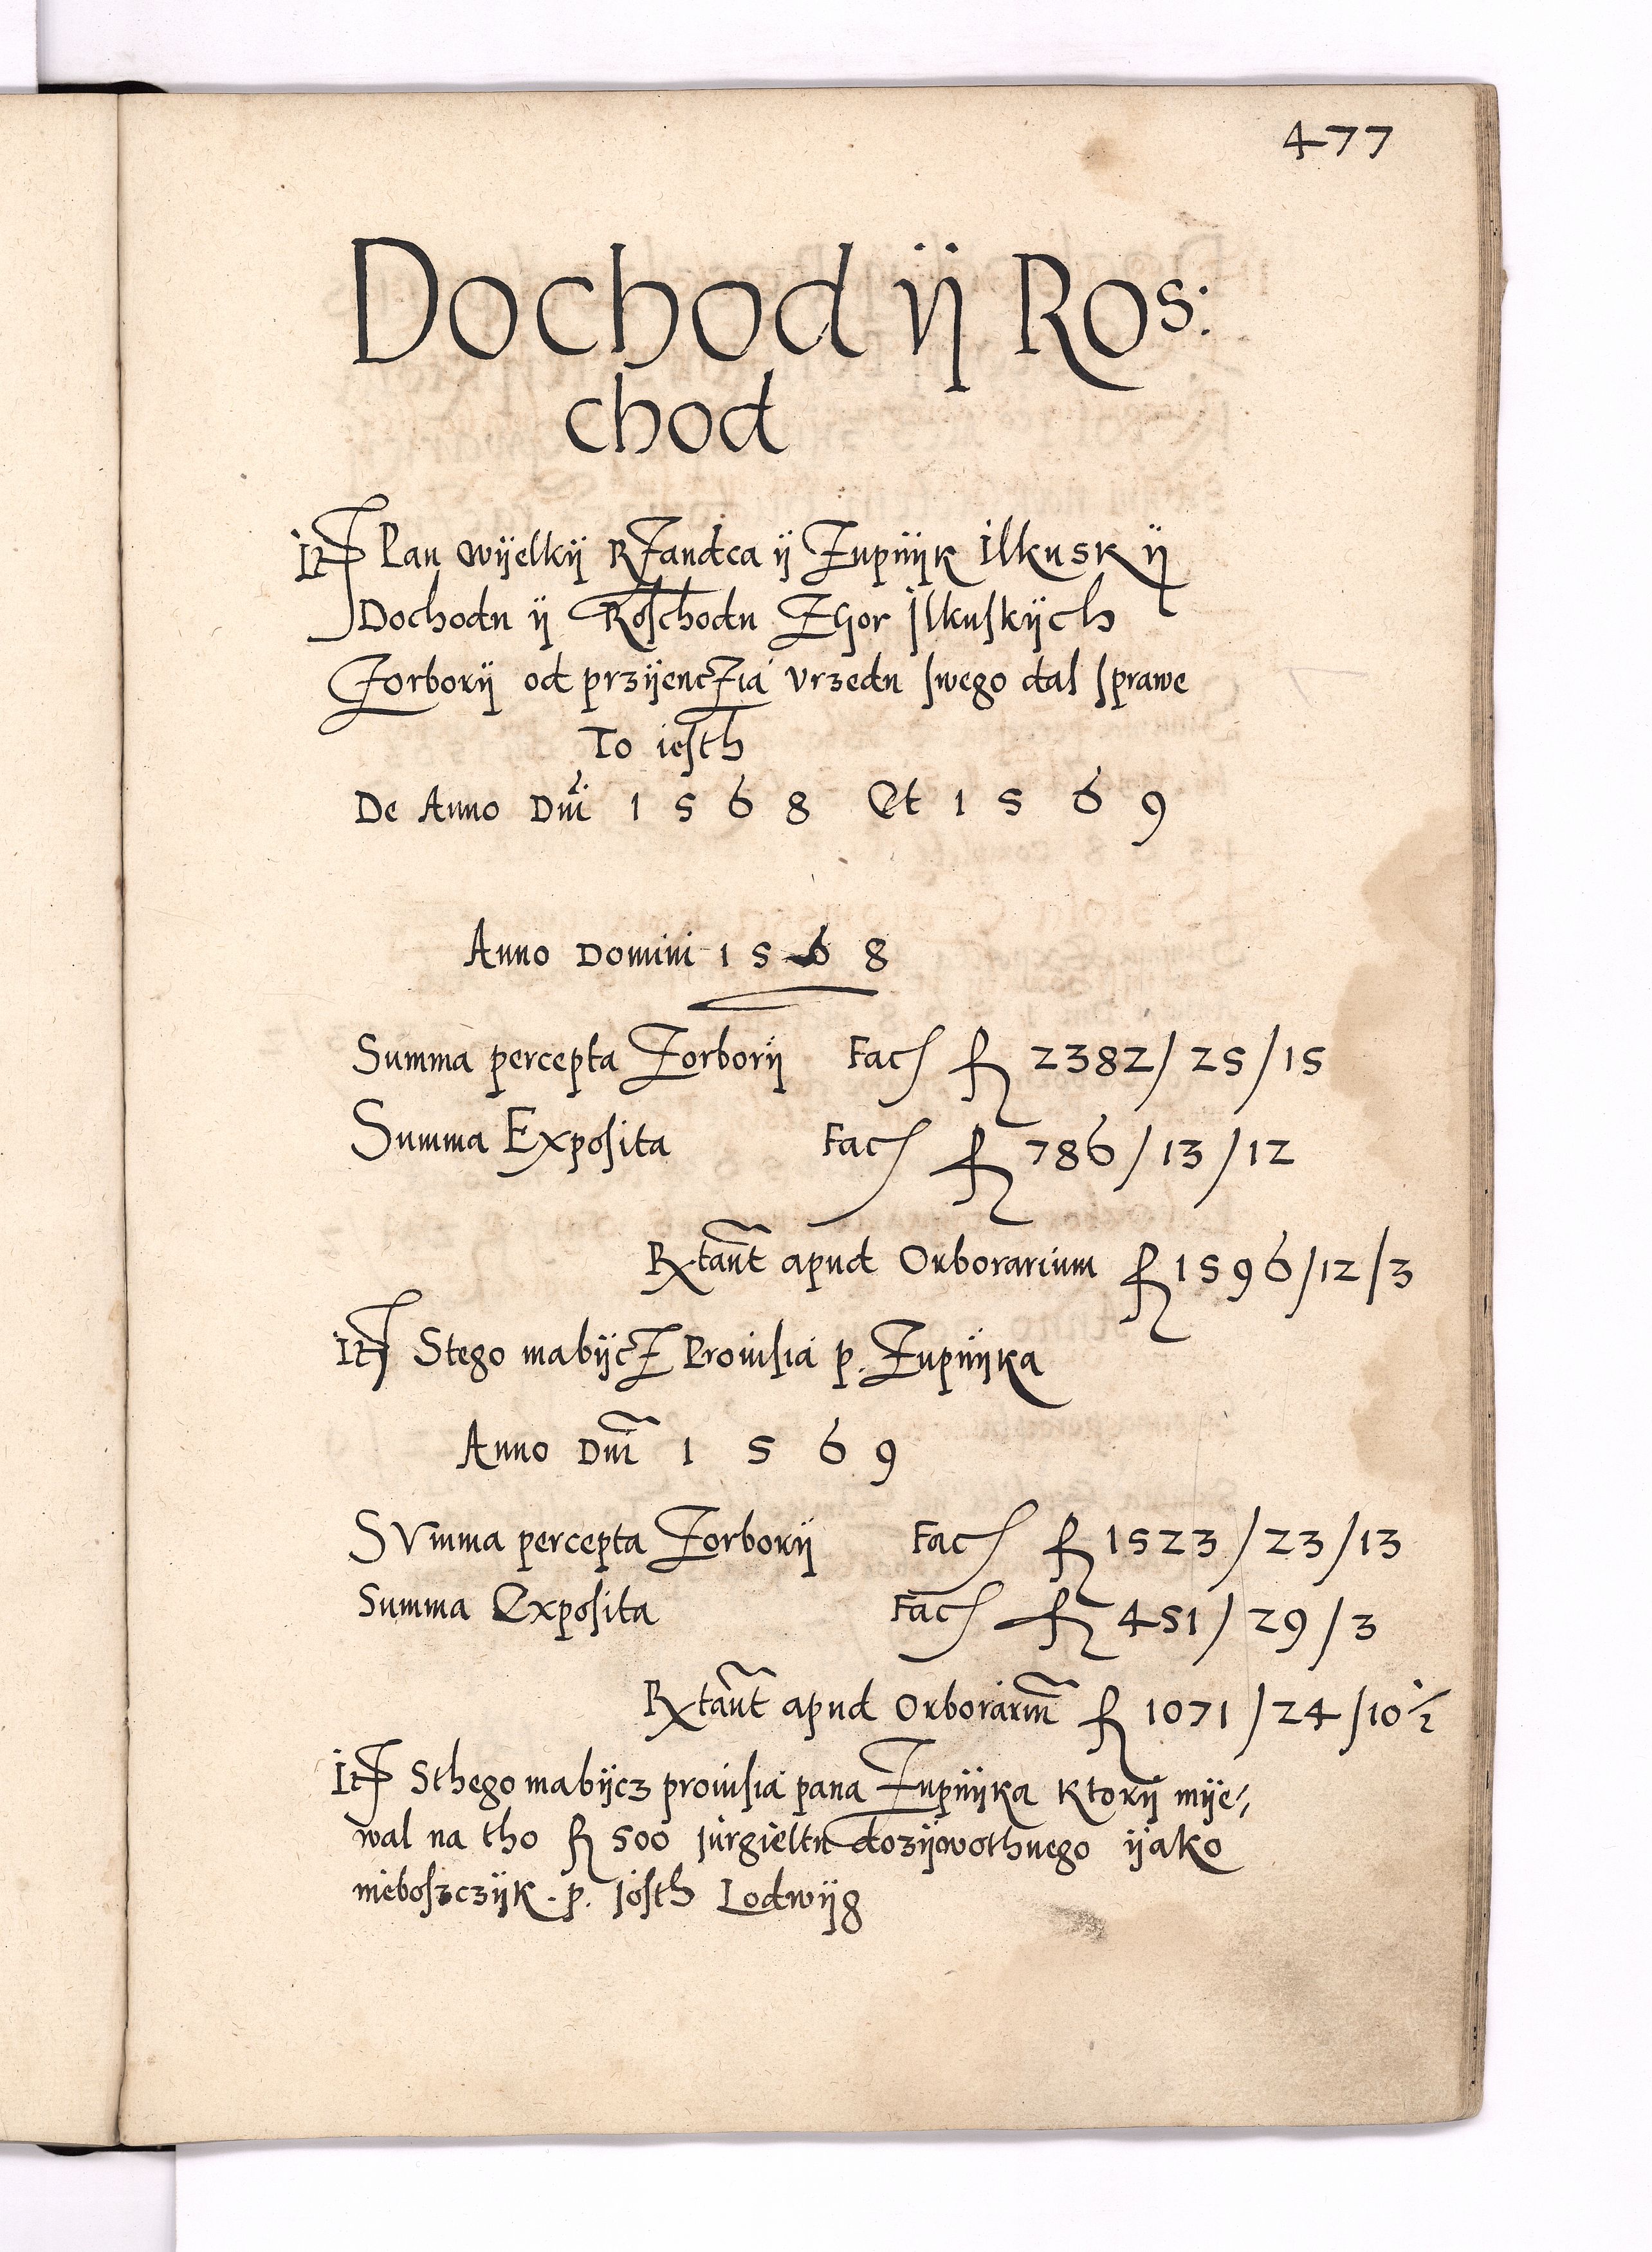 477
Dochod ÿ Ros:
chod
It Pan Wÿelkÿ RZandca ÿ Zupnÿk Ilkuskÿ
Dochodu ÿ Roschodu ZGor Ilkuskÿch
Zorborÿ od przÿenczia Vrzedu swego dal sprawe
To iesth
De Anno Dni 1568 Et 1569
Anno Domini 1568
Summa percepta Zorborÿ Fac fl 2382/25/15
Summa Exposita Fac fl 786/13/12
Rxtant apud Orborarium fl 1596/12/3
It Stego mabÿcZ Prouisia p. Zupnÿka
Anno Dni 1569
SVmma percepta Zorborÿ Fac fl 1523/23/13
Summa Exposita Fac fl 451/29/3
Rxtant apud Orborarium fl 1071/24/10½
It Sthego mabÿcz prouisia pana Zupnÿka Ktorÿ mÿe/
wal na tho fl 500 Jurgieltu dozÿwothnego ÿako
nieboszczÿk. p. Josth Lodwÿg